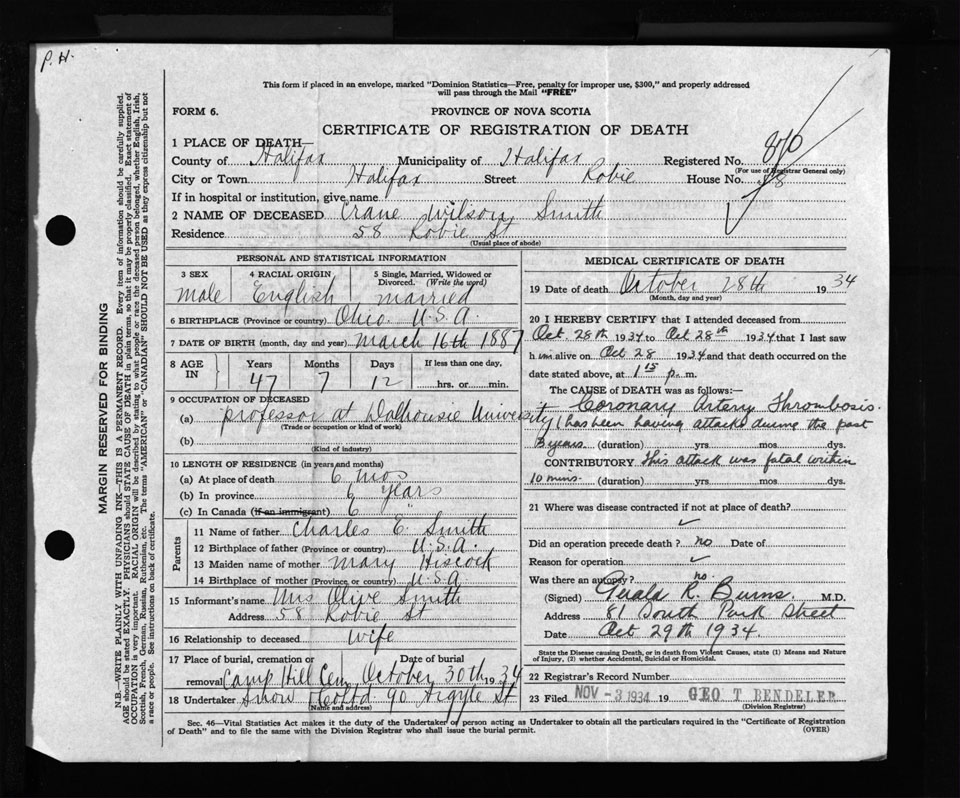 P. H.
This form if placed in an envelope, marked "Dominion Statistics—Free, penalty for improper use, $300," and properly addressed
will pass through the Mail "FREE"
FORM 6. PROVINCE OF NOVA SCOTIA
CERTIFICATE OF REGISTRATION OF DEATH
1 PLACE OF DEATH—
County of Halifax Municipality of Halifax Registered No. 870
(For use of Registrar General only)
City or Town Halifax Street Robie House No. 58
If in hospital or institution, give name
2 NAME OF DECEASED Crane Wilson Smith
Residence 58 Robie St
(Usual place of abode)
PERSONAL AND STATISTICAL INFORMATION
3 SEX 4 RACIAL ORIGIN 5 Single, Married, Widowed or
Divorced. (Write the word)
male English married
6 BIRTHPLACE (Province or country) Ohio. U.S.A.
7 DATE OF BIRTH (month, day and year) march 16th 1887
8 AGE IN Years Months Days If less than one day,
47 7 12 hrs. or min.
9 OCCUPATION OF DECEASED
(a) professor at Dalhousie University
(Trade or occupation or kind of work)
(b)
(Kind of industry)
10 LENGTH OF RESIDENCE (in years and months)
(a) At place of death 6 mo.
(b) In province 6 years
(c) In Canada (if an immigrant) 6 "
Parents
11 Name of father Charles E. Smith
12 Birthplace of father (Province or country) U.S.A.
13 Maiden name of mother Mary Hiscock
14 Birthplace of mother (Province or country) U.S.A
15 Informant's name Mrs Olive Smith
Address 58 Robie St
16 Relationship to deceased wife
17 Place of burial, cremation or Date of burial
removal Camp Hill Cem October 30th 1934
18 Undertaker Snow & Co Ltd 90 Argyle St
(Name and address)
MEDICAL CERTIFICATE OF DEATH
19 Date of death October 28th 1934
(Month, day and year)
20 I HEREBY CERTIFY that I attended deceased from
Oct. 28th 1934 to Oct 28th 1934 that I last saw
h im alive on Oct 28 1934 and that death occurred on the
date stated above, at 1 15 p. m.
The CAUSE of DEATH was as follows:—
Coronary Artery Thrombosis.
(has been having attacks during the past
3 years. (duration) yrs. mos. dys.
CONTRIBUTORY This attack was fatal within
10 mins. (duration) yrs. mos. dys.
21 Where was disease contracted if not at place of death?
Did an operation precede death? no Date of
Reason for operation
Was there an autopsy? no
(Signed) Gerald R. Burns. M.D.
Address 81 South Park Street
Date Oct 29th 1934.
State the Disease causing Death, or in death from Violent Causes, state (1) Means and Nature
of Injury, (2) whether Accidental, Suicidal or Homicidal.
22 Registrar's Record Number
23 Filed NOV - 3 1934 19 GEO T BENDELER
(Division Registrar)
Sec. 46—Vital Statistics Act makes it the duty of the Undertaker or person acting as Undertaker to obtain all the particulars required in the "Certificate of Registration
of Death" and to file the same with the Division Registrar who shall issue the burial permit.
(OVER)
MARGIN RESERVED FOR BINDING
N.B.—WRITE PLAINLY WITH UNFADING INK—THIS IS A PERMANENT RECORD. Every item of information should be carefully supplied.
AGE should be stated EXACTLY. PHYSICIANS should STATE CAUSE OF DEATH in plain terms, so that it may be properly classified. Exact statement of
OCCUPATION is very important. RACIAL ORIGIN will be described by stating to what people or race the deceased person belonged, whether English, Irish,
Scottish, French, German, Russian, Ruthenian, etc. The terms "AMERICAN" or "CANADIAN" SHOULD NOT BE USED as they express citizenship but not
a race or people. See instructions on back of certificate.